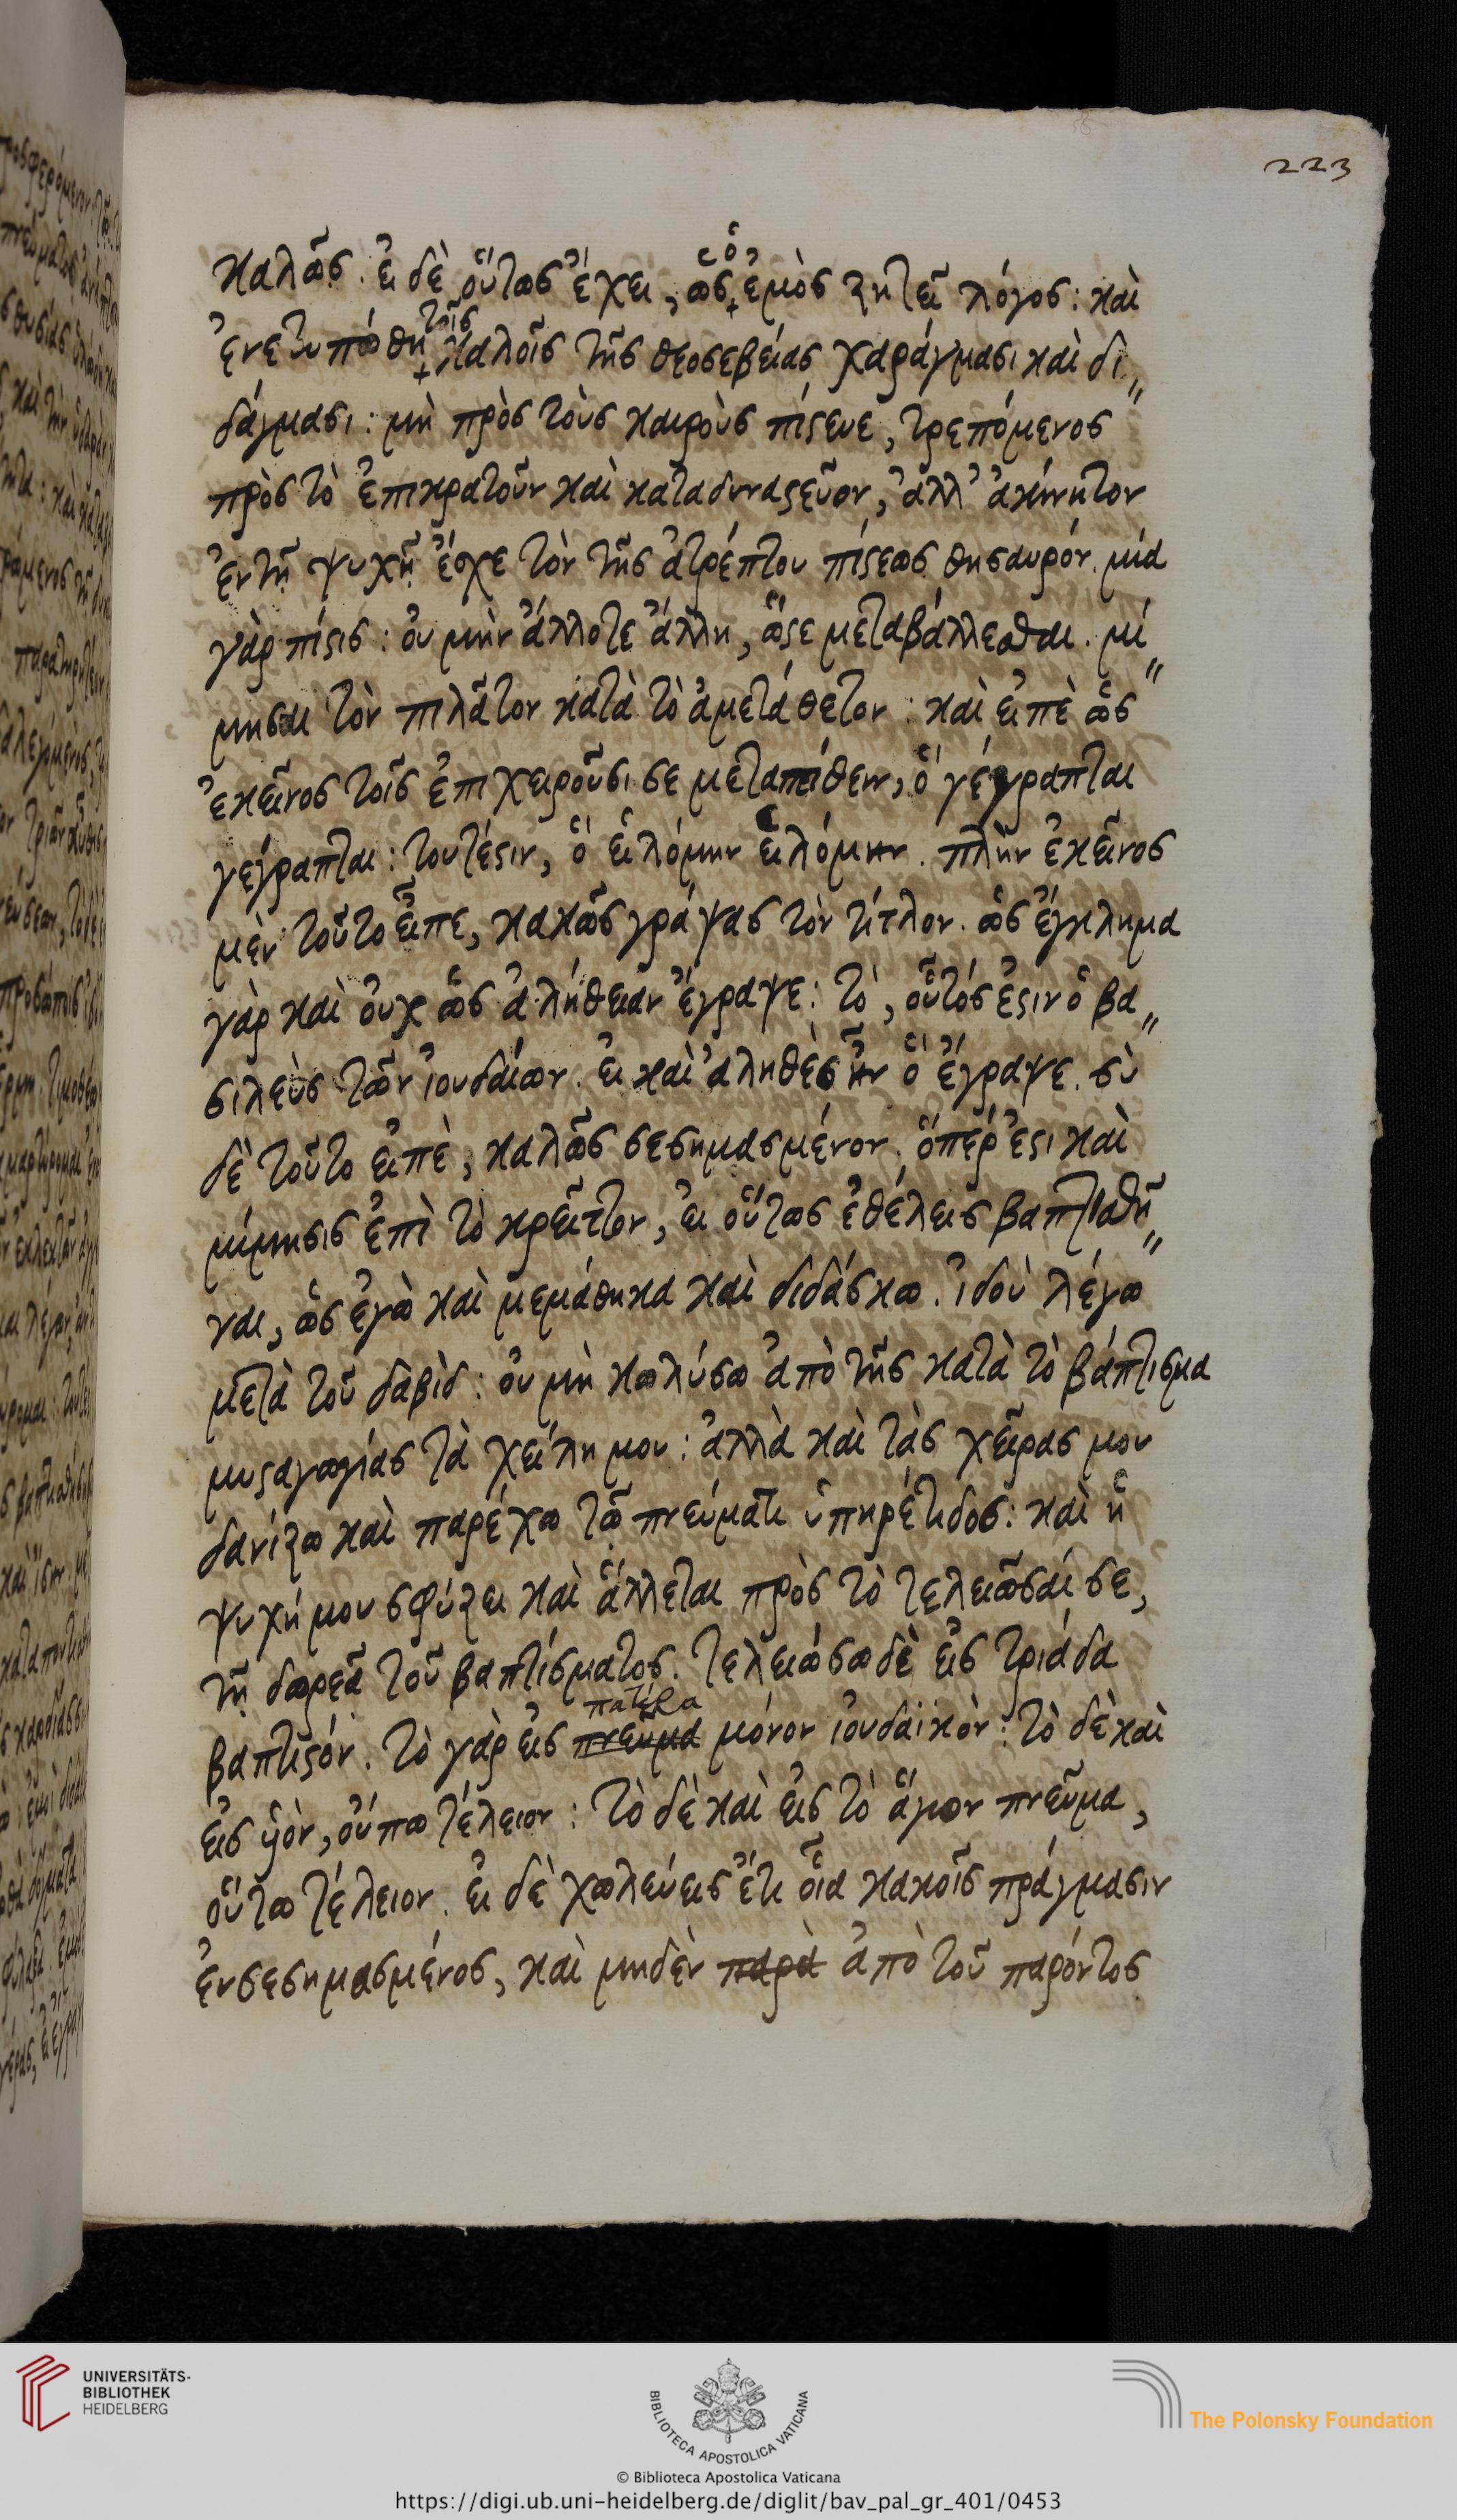 223
καλῶς. εἰ δὲ οὕτως ἔχει, ὡς ὁ ἐμὸς ζητεῖ λόγος: καὶ
ἐνετυπώθη τοῖς καλοῖς τῆς θεοσεβείας χαράγμασι καὶ δι„
δάγμασι: μὴ πρὸς τοὺς καιροὺς πίστευε, τρεπόμενος
πρὸς τὸ ἐπικρατοῦν καὶ καταδυναστεῦον, ἀλλ' ἀκίνητον
ἐν τῇ ψυχῇ ἔσχε τὸν τῆς ἀτρέπτου πίστεως θησαυρόν. μία
γὰρ πίστις: οὐ μὴν ἄλλοτε ἄλλη, ὥστε μεταβάλλεσθαι. μί„
μησαι τὸν πιλᾶτον κατὰ τὸ ἀμετάθετον: καὶ εἰπὲ ὡς
ἐκεῖνος τοῖς ἐπιχειροῦσι σε μεταπείθειν, ὃ γέγραπται
γέγραπται: τουτέστιν, ὃ εἱλόμην εἱλόμην. πλὴν ἐκεῖνος
μὲν τοῦτο εἶπε, κακῶς γράψας τὸν τίτλον. ὡς ἔγκλημα
γὰρ καὶ οὐχ ὡς ἀλήθειαν ἔγραψε: τὸ, οὗτός ἐστιν ὁ βα„
σιλεὺς τῶν ἰουδαίων. εἰ καὶ ἀληθὲς ἦν ὃ ἔγραψε. σὺ
δὲ τοῦτο εἰπὲ, καλῶς σεσημασμένον. ὅπερ ἐστι καὶ
μίμησις ἐπὶ τὸ κρεῖττον, εἰ οὕτως ἐθέλεις βαπτισθῆ„
ναι, ὡς ἐγὼ καὶ μεμάθηκα καὶ διδάσκω. ἰδοὺ λέγω
μετὰ τοῦ δαβὶδ: οὐ μὴ κωλύσω ἀπὸ τῆς κατὰ τὸ βάπτισμα
μυσταγωγίας τὰ χείλη μου: ἀλλὰ καὶ τὰς χεῖρας μου
δανίζω καὶ παρέχω τῷ πνεύματι ὑπηρέτιδος: καὶ ἡ
ψυχή μου σφύζει καὶ ἅλλεται πρὸς τὸ τελειῶσαί σε,
τῇ δωρεᾷ τοῦ βαπτίσματος. τελειώσω δὲ εἰς τριάδα
βαπτιστόν. τὸ γὰρ εἰς πνεῦμα πατέρα μόνον ἰουδαϊκὸν: τὸ δὲ καὶ
εἰς υἱὸν, οὔπω τέλειον: τὸ δὲ καὶ εἰς τὸ ἅγιον πνεῦμα,
οὕτω τέλειον. εἰ δὲ χωλεύεις ἔτι οἷα κακοῖς πράγμασιν
ἐνσεσημασμένος, καὶ μηδὲν παρὰ ἀπὸ τοῦ παρόντος
UNIVERSITÄTS-
BIBLIOTHEK
HEIDELBERG
BIBLIOTECA APOSTOLICA VATICANA
The Polonsky Foundation
© Biblioteca Apostolica Vaticana
https://digi.ub.uni-heidelberg.de/diglit/bav_pal_gr_401/0453